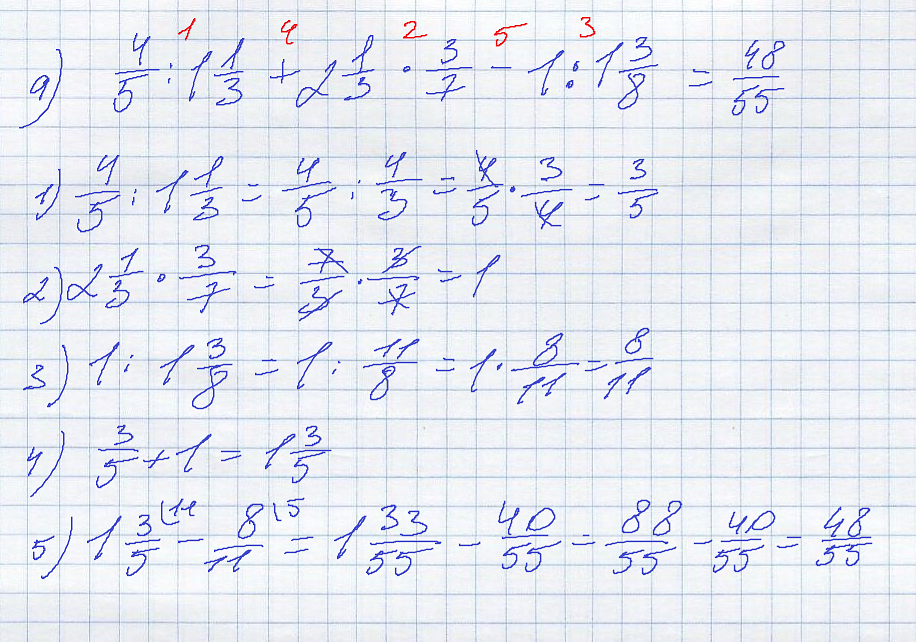 1 4 2 5 3
9) 4/5 : 1 1/3 + 2 1/3 · 3/7 - 1 : 1 3/8 = 48/55
1) 4/5 : 1 1/3 = 4/5 : 4/3 = 4/5 · 3/4 = 3/5
2) 2 1/3 · 3/7 = 7/3 · 3/7 = 1
3) 1 : 1 3/8 = 1 : 11/8 = 1 · 8/11 = 8/11
4) 3/5 + 1 = 1 3/5
5) 1 3/5 \11 - 8/11 \5 = 1 33/55 - 40/55 = 88/55 - 40/55 = 48/55